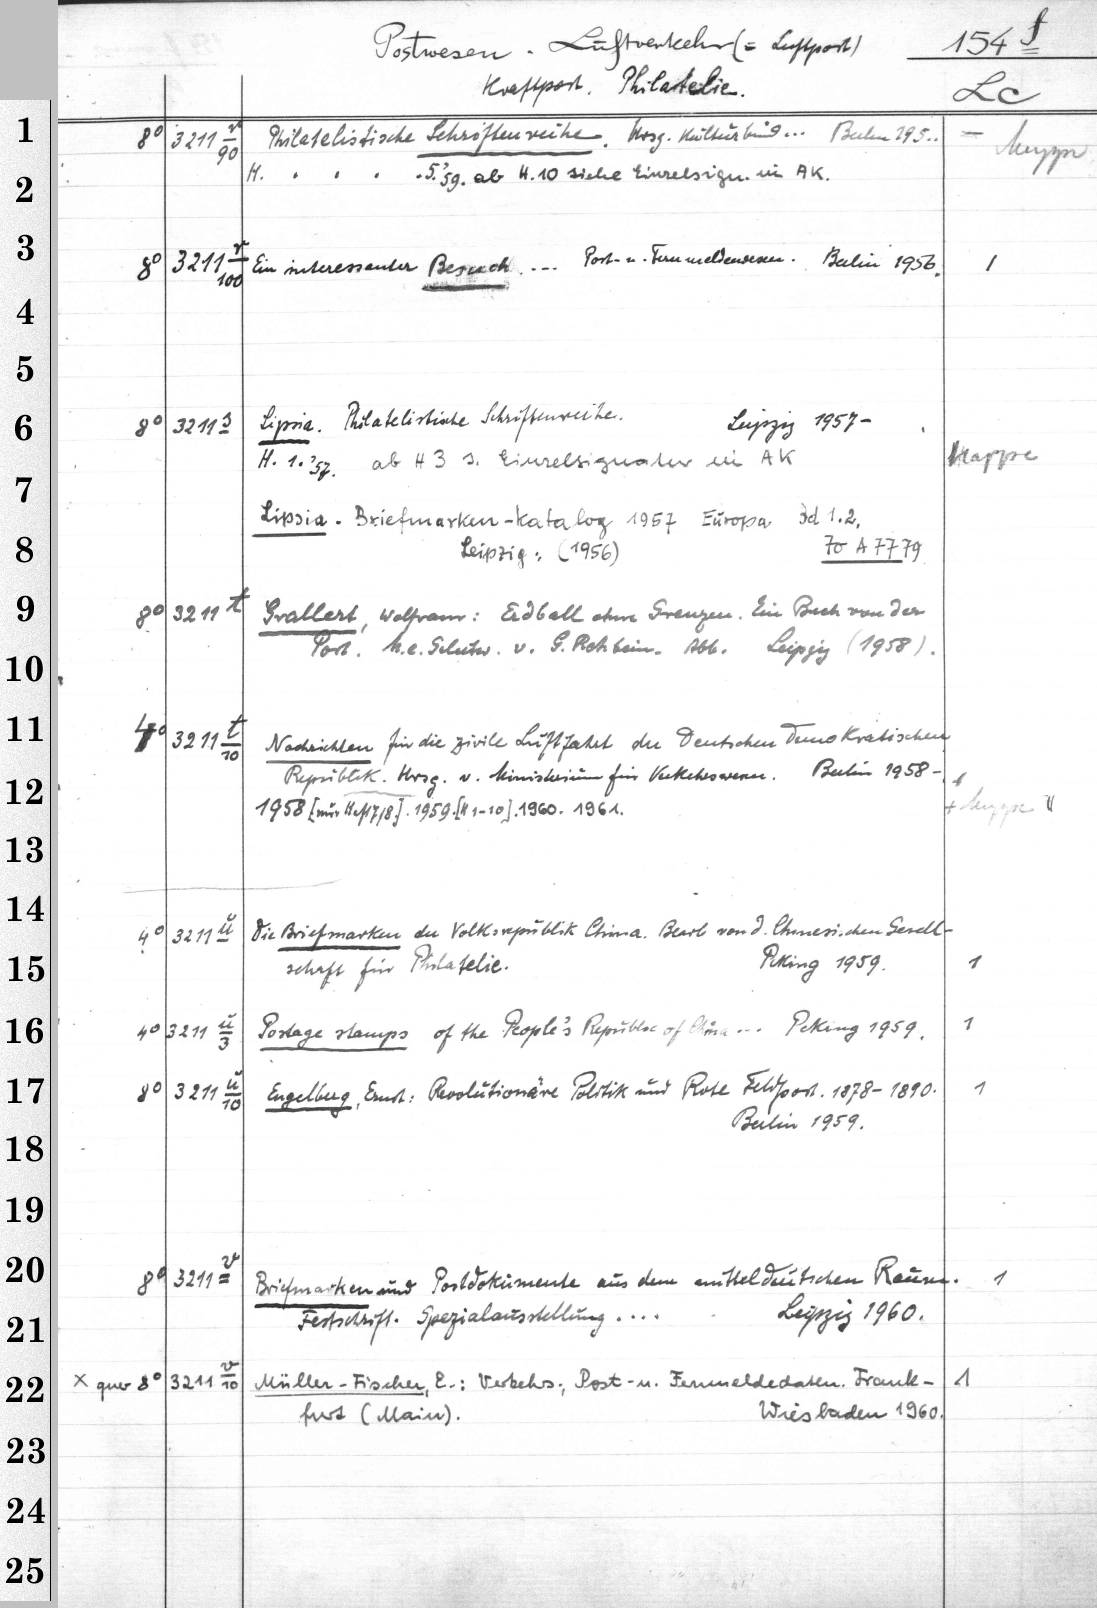 Postwesen. Luftverkehr (= Luftpost) 154 f
Kraftpost. Philatelie. Lc
1 8° 3211 r/90 Philatelistische Schriftenreihe. Hrsg. Kulturbund... Berlin 195.. – Mappe
2 H. . . . . 5.'59. ab H. 10 siehe Einzelsign. in AK.
3 8° 3211 r/100 Ein interessanter Besuch... Post- u. Fernmeldewesen. Berlin 1956. 1
4
5
6 8° 3211 s Lipsia. Philatelistische Schriftenreihe. Leipzig 1957–
H. 1.'57. ab H 3 s. Einzelsignatur in AK Mappe
7
Lipsia. Briefmarken-Katalog 1957 Europa Bd 1.2.
8 Leipzig: (1956) 70 A 7779
9 8° 3211 t Grallert, Wolfram: Erdball ohne Grenzen. Ein Buch von der
10 Post. M. e. Geleitw. v. G. Rehbein. Abb. Leipzig (1958).
11 4° 3211 t/10 Nachrichten für die zivile Luftfahrt der Deutschen Demokratischen
12 Republik. Hrsg. v. Ministerium für Verkehrswesen. Berlin 1958–
1958 [nur Heft 7/8]. 1959. [H 1-10]. 1960. 1961. + Mappe
13
14 4° 3211 u Die Briefmarken der Volksrepublik China. Bearb von d. Chinesischen Gesell-
15 schaft für Philatelie. Peking 1959. 1
16 4° 3211 u/3 Postage stamps of the People's Republic of China ... Peking 1959. 1
17 8° 3211 u/10 Engelberg, Ernst: Revolutionäre Politik und Rote Feldpost. 1878–1890. 1
Berlin 1959.
18
19
20 8° 3211 v Briefmarken und Postdokumente aus dem mitteldeutschen Raum. 1
21 Festschrift. Spezialausstellung .... Leipzig 1960.
22 x quer 8° 3211 v/10 Müller-Fischer, E.: Verkehrs-, Post- u. Fernmeldedaten. Frank- 1
furt (Main). Wiesbaden 1960.
23
24
25